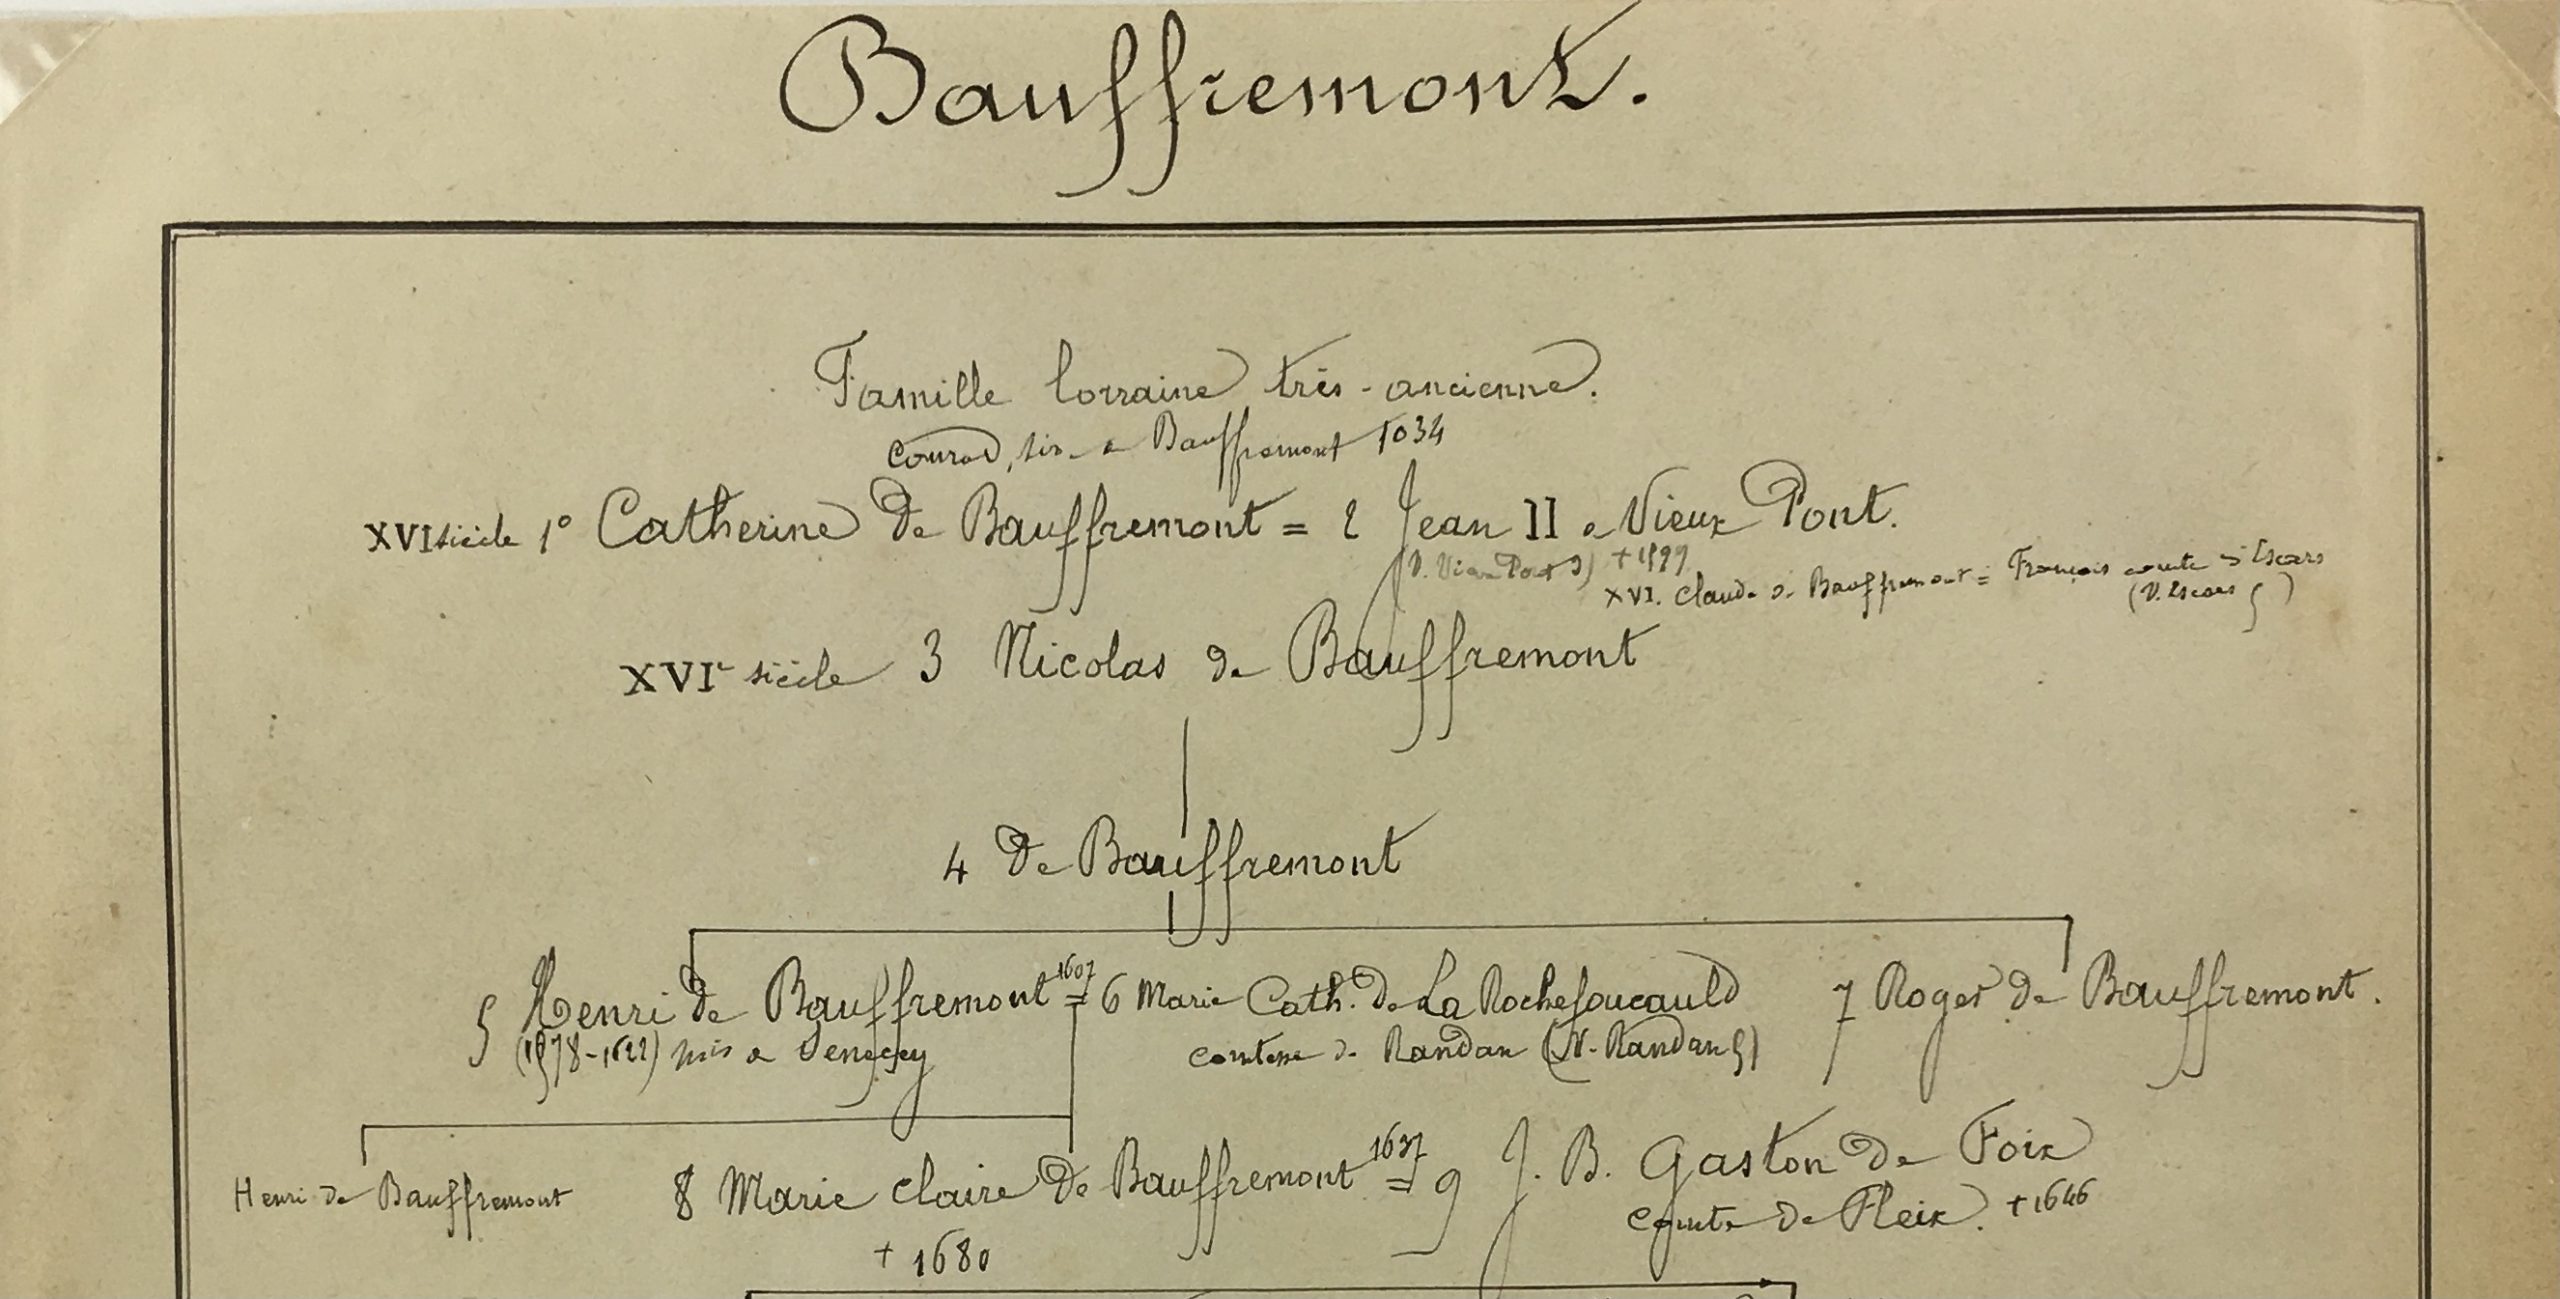 Bauffremont.
Famille lorraine très-ancienne.
Conrad, sire de Bauffremont 1034
XVI siècle 1° Catherine de Bauffremont = 2 Jean II de Vieux Pont.
(V. Vieux Pont 9) + 1599
XVI. Claude de Bauffremont = François comte d'Escars
(V. Escars 5)
XVIe siècle 3 Nicolas de Bauffremont
4 de Bauffremont
5 Henri de Bauffremont 1607 = 6 Marie Cath. de La Rochefoucauld 7 Roger de Bauffremont.
(1578-1622) mis de Senecey comtesse de Randan (V. Randan 5)
Henri de Bauffremont 8 Marie Claire de Bauffremont 1637 = 9 J. B. Gaston de Foix
comte de Fleix. + 1646
+ 1680